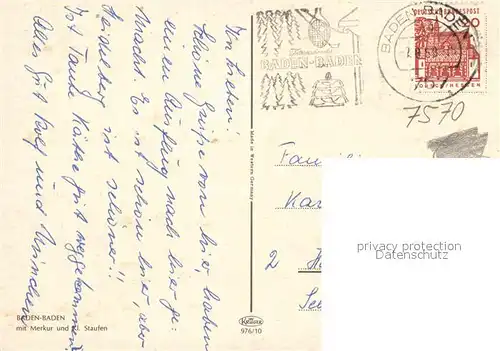 Ihr Lieben!
Schöne Grüße von hier, haben
einen Ausflug nach hier ge-
macht. Es ist schön hier, aber
Heidelberg ist schöner!!
Ist Tante Käthe gut weggekommen?
Alles Gute Rolf und
BADEN-BADEN
mit Merkur und Kl. Staufen
Made in Western Germany
Krüger
976/10
BADEN-BADEN
BADEN-BADEN
757
DEUTSCHE BUNDESPOST
LORSCH/HESSEN
7570
Familie
2
privacy protection
Oldthing GmbH